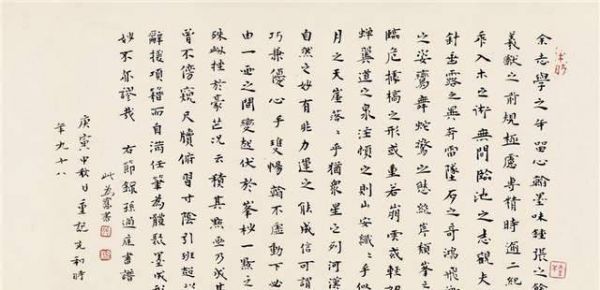 余志學之年留心翰墨味鍾張之餘
羲獻之前規極慮專精時逾二紀
乖入木之術無間臨池之志觀夫
針垂露之異奔雷墜石之奇鴻飛
之姿鸞舞蛇驚之態絕岸頹峯之
臨危據槁之形或重若崩雲或輕如
蟬翼導之泉注頓之則山安纖〻乎似
月之天崖落〻乎猶眾星之列河漢
自然之妙有非力運之能成信可謂
巧兼優心手雙暢翰不虛動下必
由一畫之間變起伏於峯杪一點之
殊衄挫於豪芒況云積其點畫乃成其
曾不傍窺尺牘俯習寸陰引班超以
辭援項籍而自滿任筆為體聚墨成形
妙不亦謬哉 右節錄孫過庭書譜
此為舊書
庚寅中秋日重記 先和時
年九十八